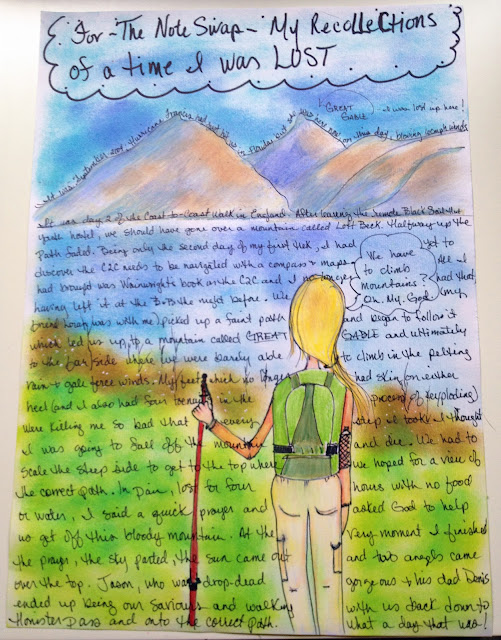 For - The Note Swap - My Recollections
of a time I was LOST
GREAT
GABLE
I was lost up here!
It was September 2004, Hurricane Francis had hit in Florida but on this day, blowing 100mph winds
It was day 2 of the Coast-to-Coast walk in England. After leaving the remote Black Sail Hut
Youth hostel, we should have gone over a mountain called Loft Beck. Halfway up the
Path faded. Being only the second day of my first trek, I had yet to
discover the C2C needs to be navigated with a compass & maps. All I
had brought was Wainwright's book on the C2C and I no longer had that
having left it at the B&B the night before. We (my
We have
to climb
mountains?
Oh. My. God
friend Doug was with me) picked up a faint path and began to follow it
which led us up to a mountain called GREAT GABLE and ultimately
to the far side where we were barely able to climb in the pelting
rain & gale force winds. My feet which no longer had skin on either
heel (and I also had four toenails in the process of exploding)
were killing me so bad that every step I took I thought
I was going to fall off the mountain and die. We had to
scale the steep side to get to the top where we hoped for a view of
the correct path. In pain, lost for four hours with no food
or water, I said a quick prayer and asked God to help
us get off this bloody mountain. At the very moment I finished
the prayer, the sky parted, the sun came out and two angels came
over the top. Jason, who was drop-dead gorgeous & his dad Denis
ended up being our saviours and walking with us back down to
Honister Pass and onto the correct path. What a day that was!